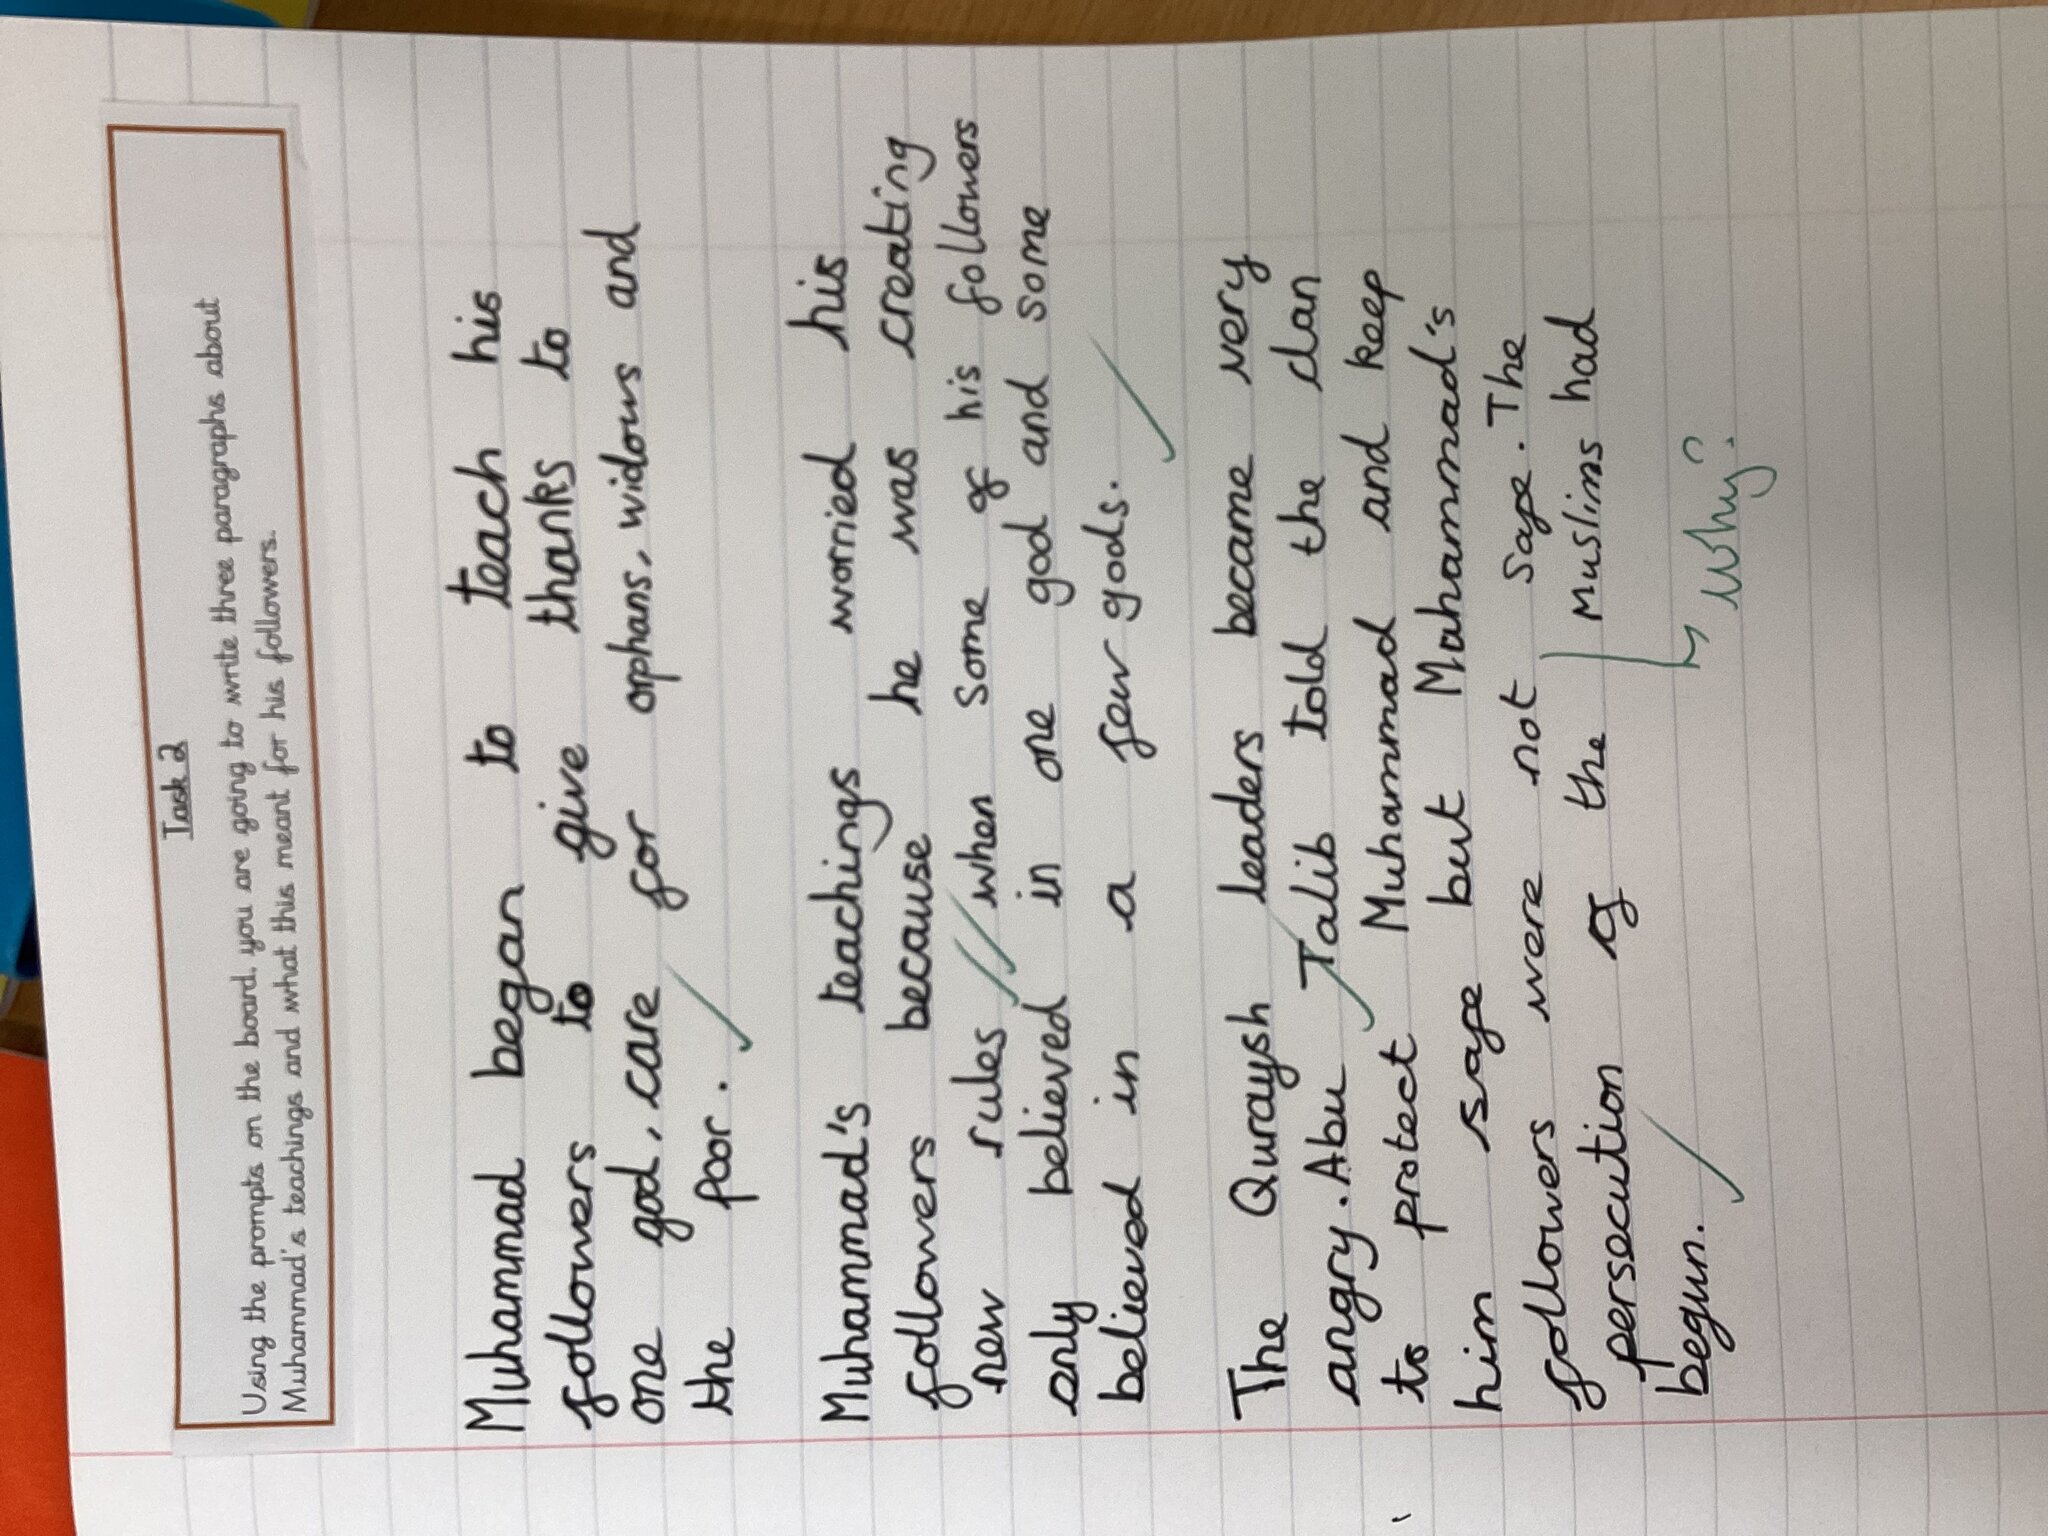 Task 2
Using the prompts on the board, you are going to write three paragraphs about
Muhammad's teachings and what this meant for his followers.
Muhammad began to teach his
followers to give thanks to
one god, care for orphans, widows and
the poor.
Muhammad's teachings worried his
followers because he was creating
new rules when some of his followers
only believed in one god and some
believed in a few gods.
The Quraysh leaders became very
angry. Abu Talib told the clan
to protect Muhammad and keep
him safe but Mahammad's
followers were not safe. The
persecution of the Muslims had
begun.
Why?